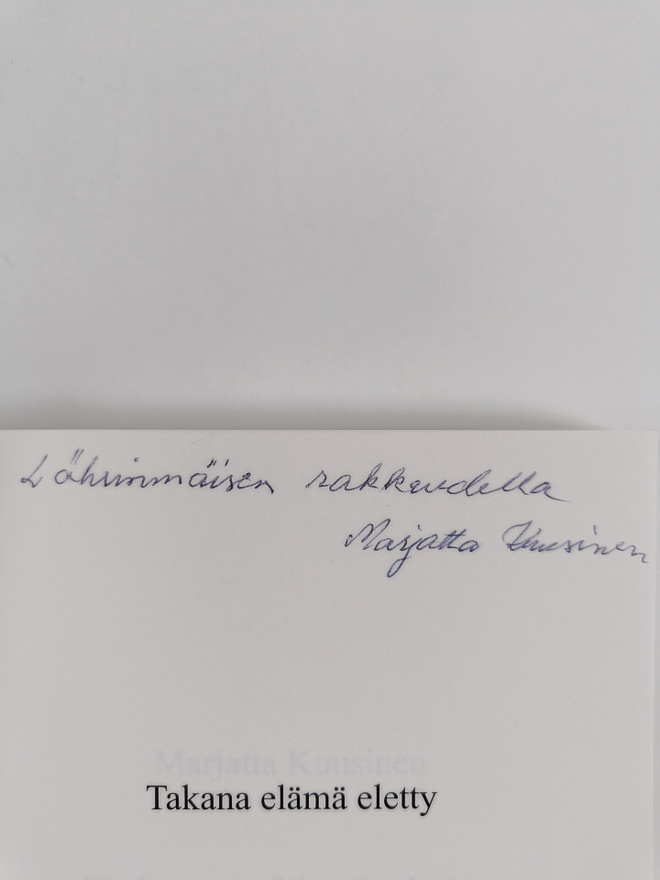 Lähimmäisen rakkaudella
Marjatta Kuusinen
Marjatta Kuusinen
Takana elämä eletty